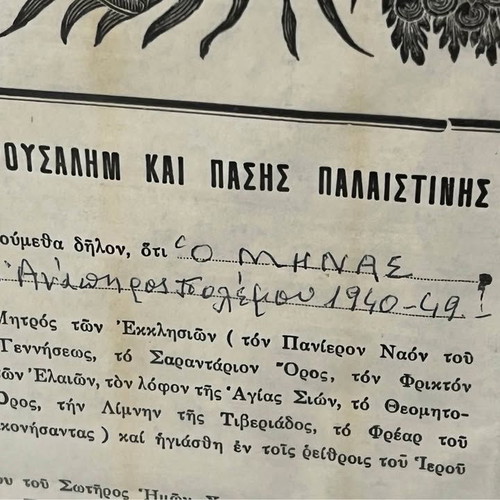 ΟΥΣΑΛΗΜ ΚΑΙ ΠΑΣΗΣ ΠΑΛΑΙΣΤΙΝΗΣ
ούμεθα δῆλον, ὅτι Ὁ ΜΗΝΑΣ
Ἀνάπηρος πολέμου 1940-49!
Μητρός τῶν Ἐκκλησιῶν ( τόν Πανίερον Ναόν τοῦ
Γεννήσεως, τό Σαραντάριον Ὄρος, τόν Φρικτόν
ῶν Ἐλαιῶν, τὸν λόφον τῆς Ἁγίας Σιών, τό Θεομητο-
Ὄρος, τήν Λίμνην τῆς Τιβεριάδος, τό Φρέαρ τοῦ
κονήσαντας ) καί ἡγιάσθη ἐν τοῖς ῥείθροις τοῦ Ἱεροῦ
ου τοῦ Σωτῆρος Ἡμῶν